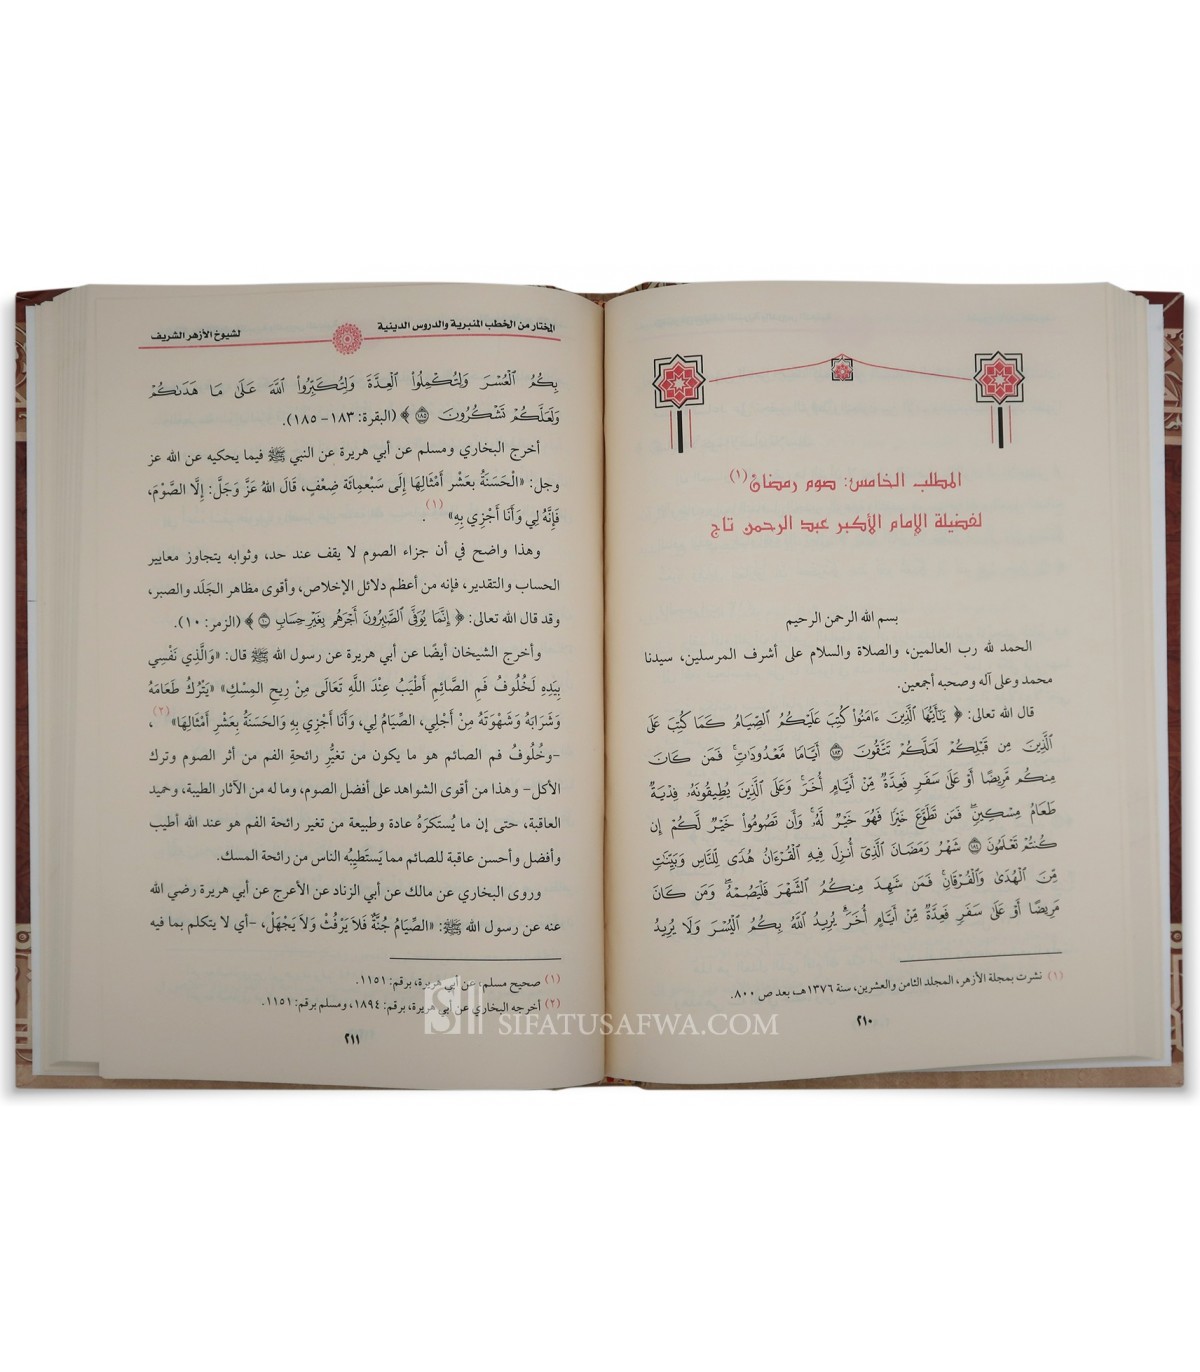 المطلب الخامس: صوم رمضان(١)
لفضيلة الإمام الأكبر عبد الرحمن تاج
بسم الله الرحمن الرحيم
الحمد لله رب العالمين، والصلاة والسلام على أشرف المرسلين، سيدنا
محمد وعلى آله وصحبه أجمعين.
قال الله تعالى: ﴿ يَـٰٓأَيُّهَا ٱلَّذِينَ ءَامَنُوا۟ كُتِبَ عَلَيْكُمُ ٱلصِّيَامُ كَمَا كُتِبَ عَلَى
ٱلَّذِينَ مِن قَبْلِكُمْ لَعَلَّكُمْ تَتَّقُونَ ۝١٨٣ أَيَّامًا مَّعْدُودَٰتٍ ۚ فَمَن كَانَ
مِنكُم مَّرِيضًا أَوْ عَلَىٰ سَفَرٍ فَعِدَّةٌ مِّنْ أَيَّامٍ أُخَرَ ۚ وَعَلَى ٱلَّذِينَ يُطِيقُونَهُۥ فِدْيَةٌ
طَعَامُ مِسْكِينٍ ۖ فَمَن تَطَوَّعَ خَيْرًا فَهُوَ خَيْرٌ لَّهُۥ ۚ وَأَن تَصُومُوا۟ خَيْرٌ لَّكُمْ ۖ إِن
كُنتُمْ تَعْلَمُونَ ۝١٨٤ شَهْرُ رَمَضَانَ ٱلَّذِىٓ أُنزِلَ فِيهِ ٱلْقُرْءَانُ هُدًى لِّلنَّاسِ وَبَيِّنَـٰتٍ
مِّنَ ٱلْهُدَىٰ وَٱلْفُرْقَانِ ۚ فَمَن شَهِدَ مِنكُمُ ٱلشَّهْرَ فَلْيَصُمْهُ ۖ وَمَن كَانَ
مَرِيضًا أَوْ عَلَىٰ سَفَرٍ فَعِدَّةٌ مِّنْ أَيَّامٍ أُخَرَ ۗ يُرِيدُ ٱللَّهُ بِكُمُ ٱلْيُسْرَ وَلَا يُرِيدُ
(١) نشرت بمجلة الأزهر، المجلد الثامن والعشرين، سنة ١٣٧٦هـ، بعد ص ٨٠٠.
٢١٠
المختار من الخطب المنبرية والدروس الدينية
لشيوخ الأزهر الشريف
بِكُمُ ٱلْعُسْرَ وَلِتُكْمِلُوا۟ ٱلْعِدَّةَ وَلِتُكَبِّرُوا۟ ٱللَّهَ عَلَىٰ مَا هَدَىٰكُمْ
وَلَعَلَّكُمْ تَشْكُرُونَ ۝١٨٥ ﴾ (البقرة: ١٨٣- ١٨٥).
أخرج البخاري ومسلم عن أبي هريرة عن النبي ﷺ فيما يحكيه عن الله عز
وجل: «الْحَسَنَةُ بعَشْر أَمْثَالِهَا إِلَى سَبْعمِائَة ضِعْفٍ، قَالَ اللهُ عَزَّ وَجَلَّ: إِلَّا الصَّوْمَ،
فَإِنَّهُ لِي وَأَنَا أَجْزِي بِهِ»(١).
وهذا واضح في أن جزاء الصوم لا يقف عند حد، وثوابه يتجاوز معايير
الحساب والتقدير، فإنه من أعظم دلائل الإخلاص، وأقوى مظاهر الجَلَد والصبر،
وقد قال الله تعالى: ﴿ إِنَّمَا يُوَفَّى ٱلصَّـٰبِرُونَ أَجْرَهُم بِغَيْرِ حِسَابٍ ۝١٠ ﴾ (الزمر: ١٠).
وأخرج الشيخان أيضًا عن أبي هريرة عن رسول الله ﷺ قال: «وَالَّذِي نَفْسِي
بِيَدِهِ لَخُلُوفُ فَمِ الصَّائِمِ أَطْيَبُ عِنْدَ اللَّهِ تَعَالَى مِنْ رِيحِ المِسْكِ» «يَتْرُكُ طَعَامَهُ
وَشَرَابَهُ وَشَهْوَتَهُ مِنْ أَجْلِي، الصِّيَامُ لِي، وَأَنَا أَجْزِي بِهِ وَالحَسَنَةُ بعَشْرِ أَمْثَالِهَا»(٢)،
-وخُلُوفُ فم الصائم هو ما يكون من تغيُّرِ رائحةِ الفم من أثر الصوم وترك
الأكل- وهذا من أقوى الشواهد على أفضل الصوم، وما له من الآثار الطيبة، وحميد
العاقبة، حتى إن ما يُستكرَهُ عادة وطبيعة من تغير رائحة الفم هو عند الله أطيب
وأفضل وأحسن عاقبة للصائم مما يَستَطِيبُه الناس من رائحة المسك.
وروى البخاري عن مالك عن أبي الزناد عن الأعرج عن أبي هريرة رضي الله
عنه عن رسول الله ﷺ: «الصِّيَامُ جُنَّةٌ فَلاَ يَرْفُثْ وَلاَ يَجْهَلْ، -أي لا يتكلم بما فيه
(١) صحيح مسلم، عن أبي هريرة، برقم: ١١٥١.
(٢) أخرجه البخاري عن أبي هريرة، برقم: ١٨٩٤، ومسلم برقم: ١١٥١.
٢١١
SIFATUSAFWA.COM